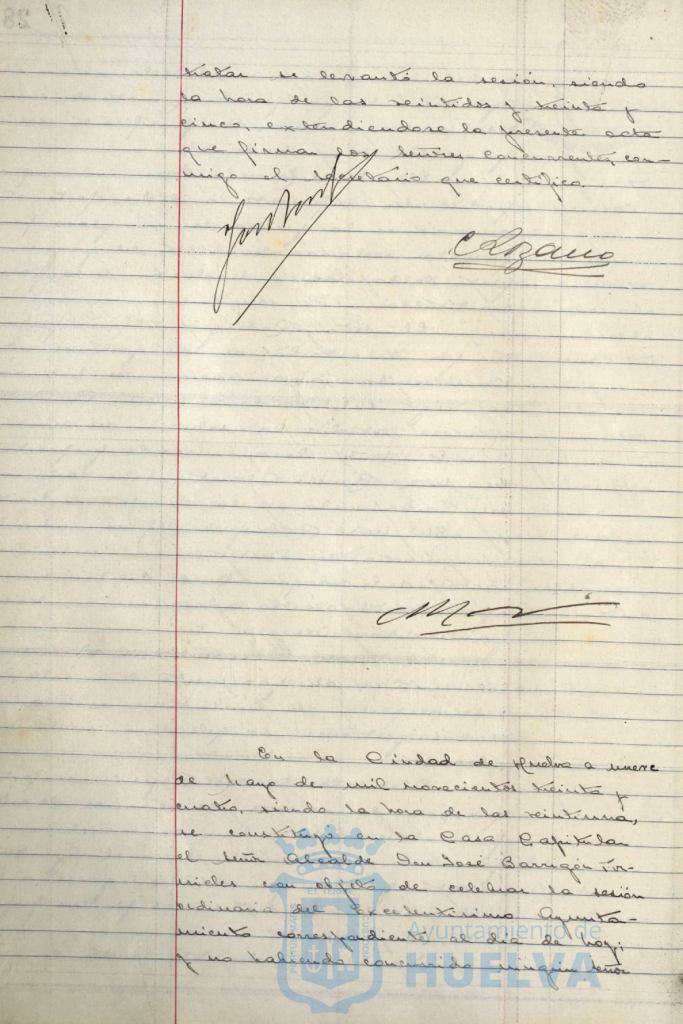 28
tratar se levantó la sesión, siendo
la hora de las veintidos y treinta y
cinco, extendiendose la presente acta
que firman los señores concurrentes, con-
migo el Secretario que certifico.
CLozano
En la Ciudad de Huelva a nueve
de Mayo de mil novecientos treinta y
cuatro, siendo la hora de las veintiuna,
se constituyó en la Casa Capitular
el señor Alcalde Don José Barrigón For-
nieles con objeto de celebrar la sesión
ordinaria del Excelentísimo Ayunta-
miento correspondiente al día de hoy;
y no habiendo concurrido ningún señor
Ayuntamiento de
HUELVA